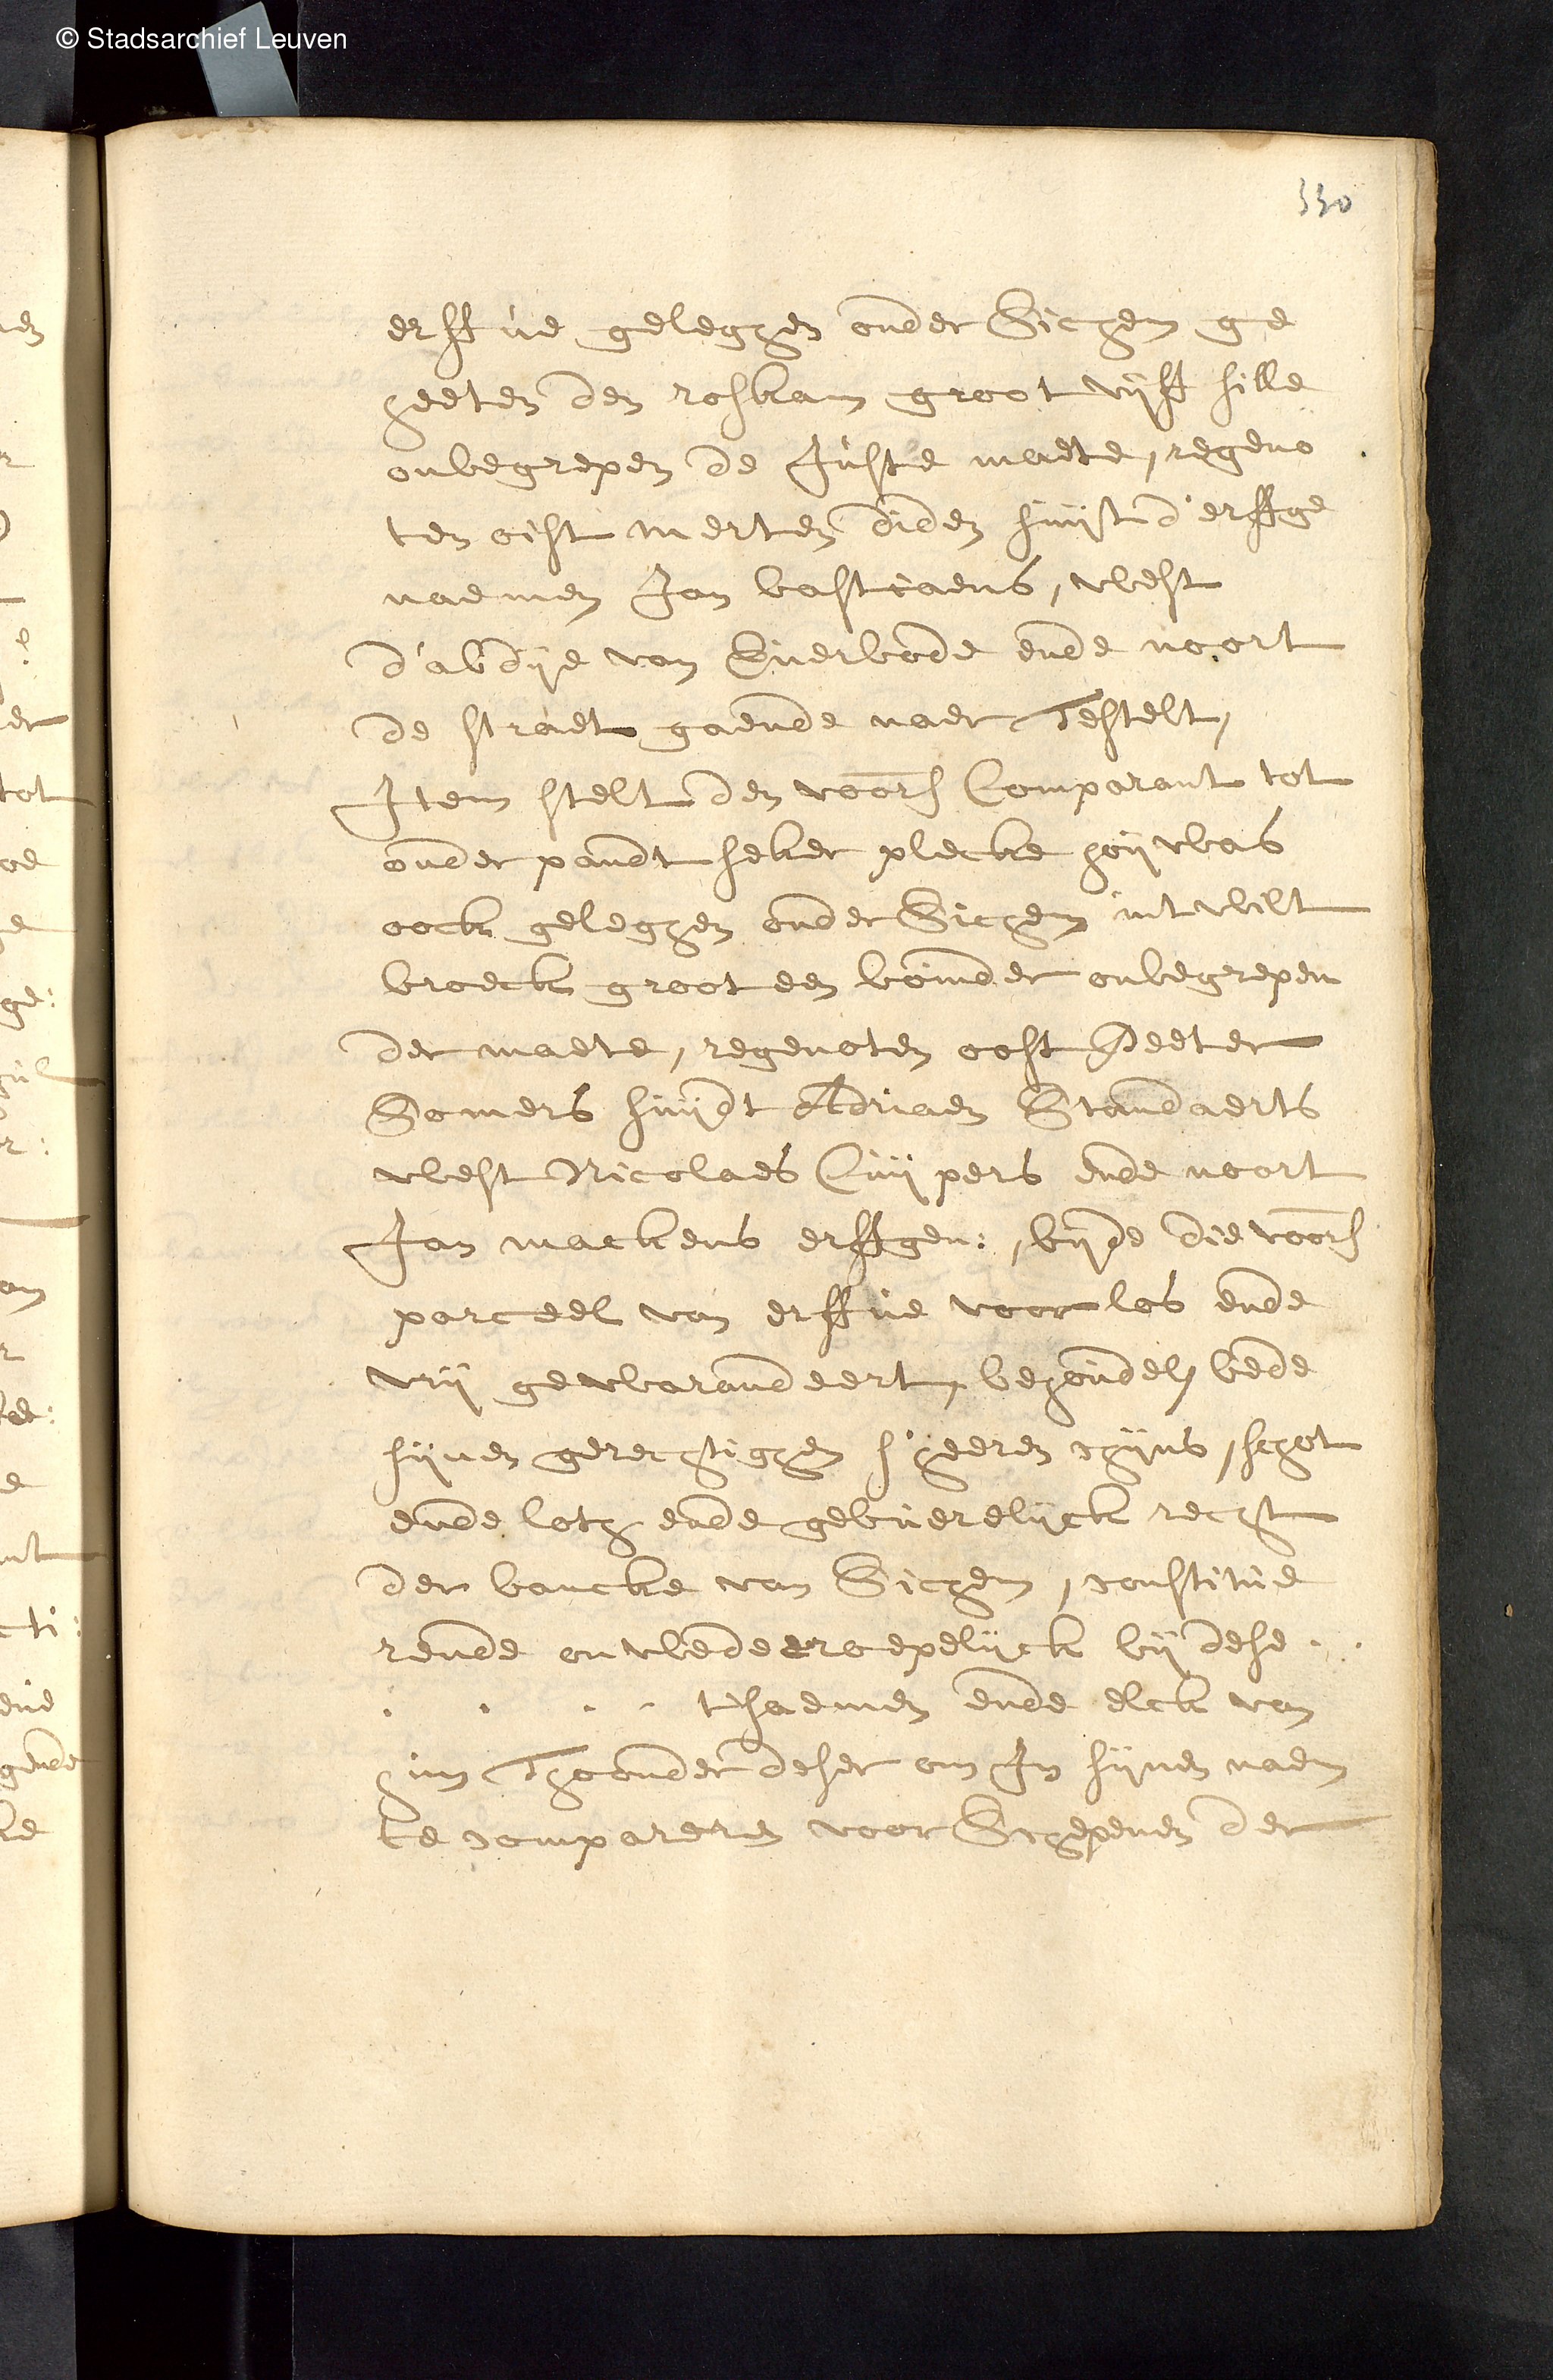 © Stadsarchief Leuven
330
erffve geleghen onder Sichem ge
heeten den roskam groot vijff sille
onbegrepen de Juste maete, regeno
ten oist merten diden suijt d'erffge
naemen Jan bastiaens, west
d'abdije van Everbode ende noort
de straet gaende naer Testelt,
Item stelt den voors Comparant tot
onderpandt seker plecke hoijwas
oock geleghen onder Sichem int wilt
broeck groot een boinder onbegrepen
der maete, regenoten oost Peeter
Somers suijdt Adriaen Standaerts
west Nicolaes Cuijpers ende noort
Jan mackens erffgen: , bijde die voors
parceel van erffve voor los ende
vrij gewarandeert, behoudel, bede
sijnen gerechtighen s'heeren chijns, schot
ende loth ende gebuerelijck recht
der bancke van Sichem, constitue
rende onwederroepelijck bij dese . .
. . . . tsaemen ende elck van
hun Thoonder deser om In sijnen naem
te compareren voor Schepenen der